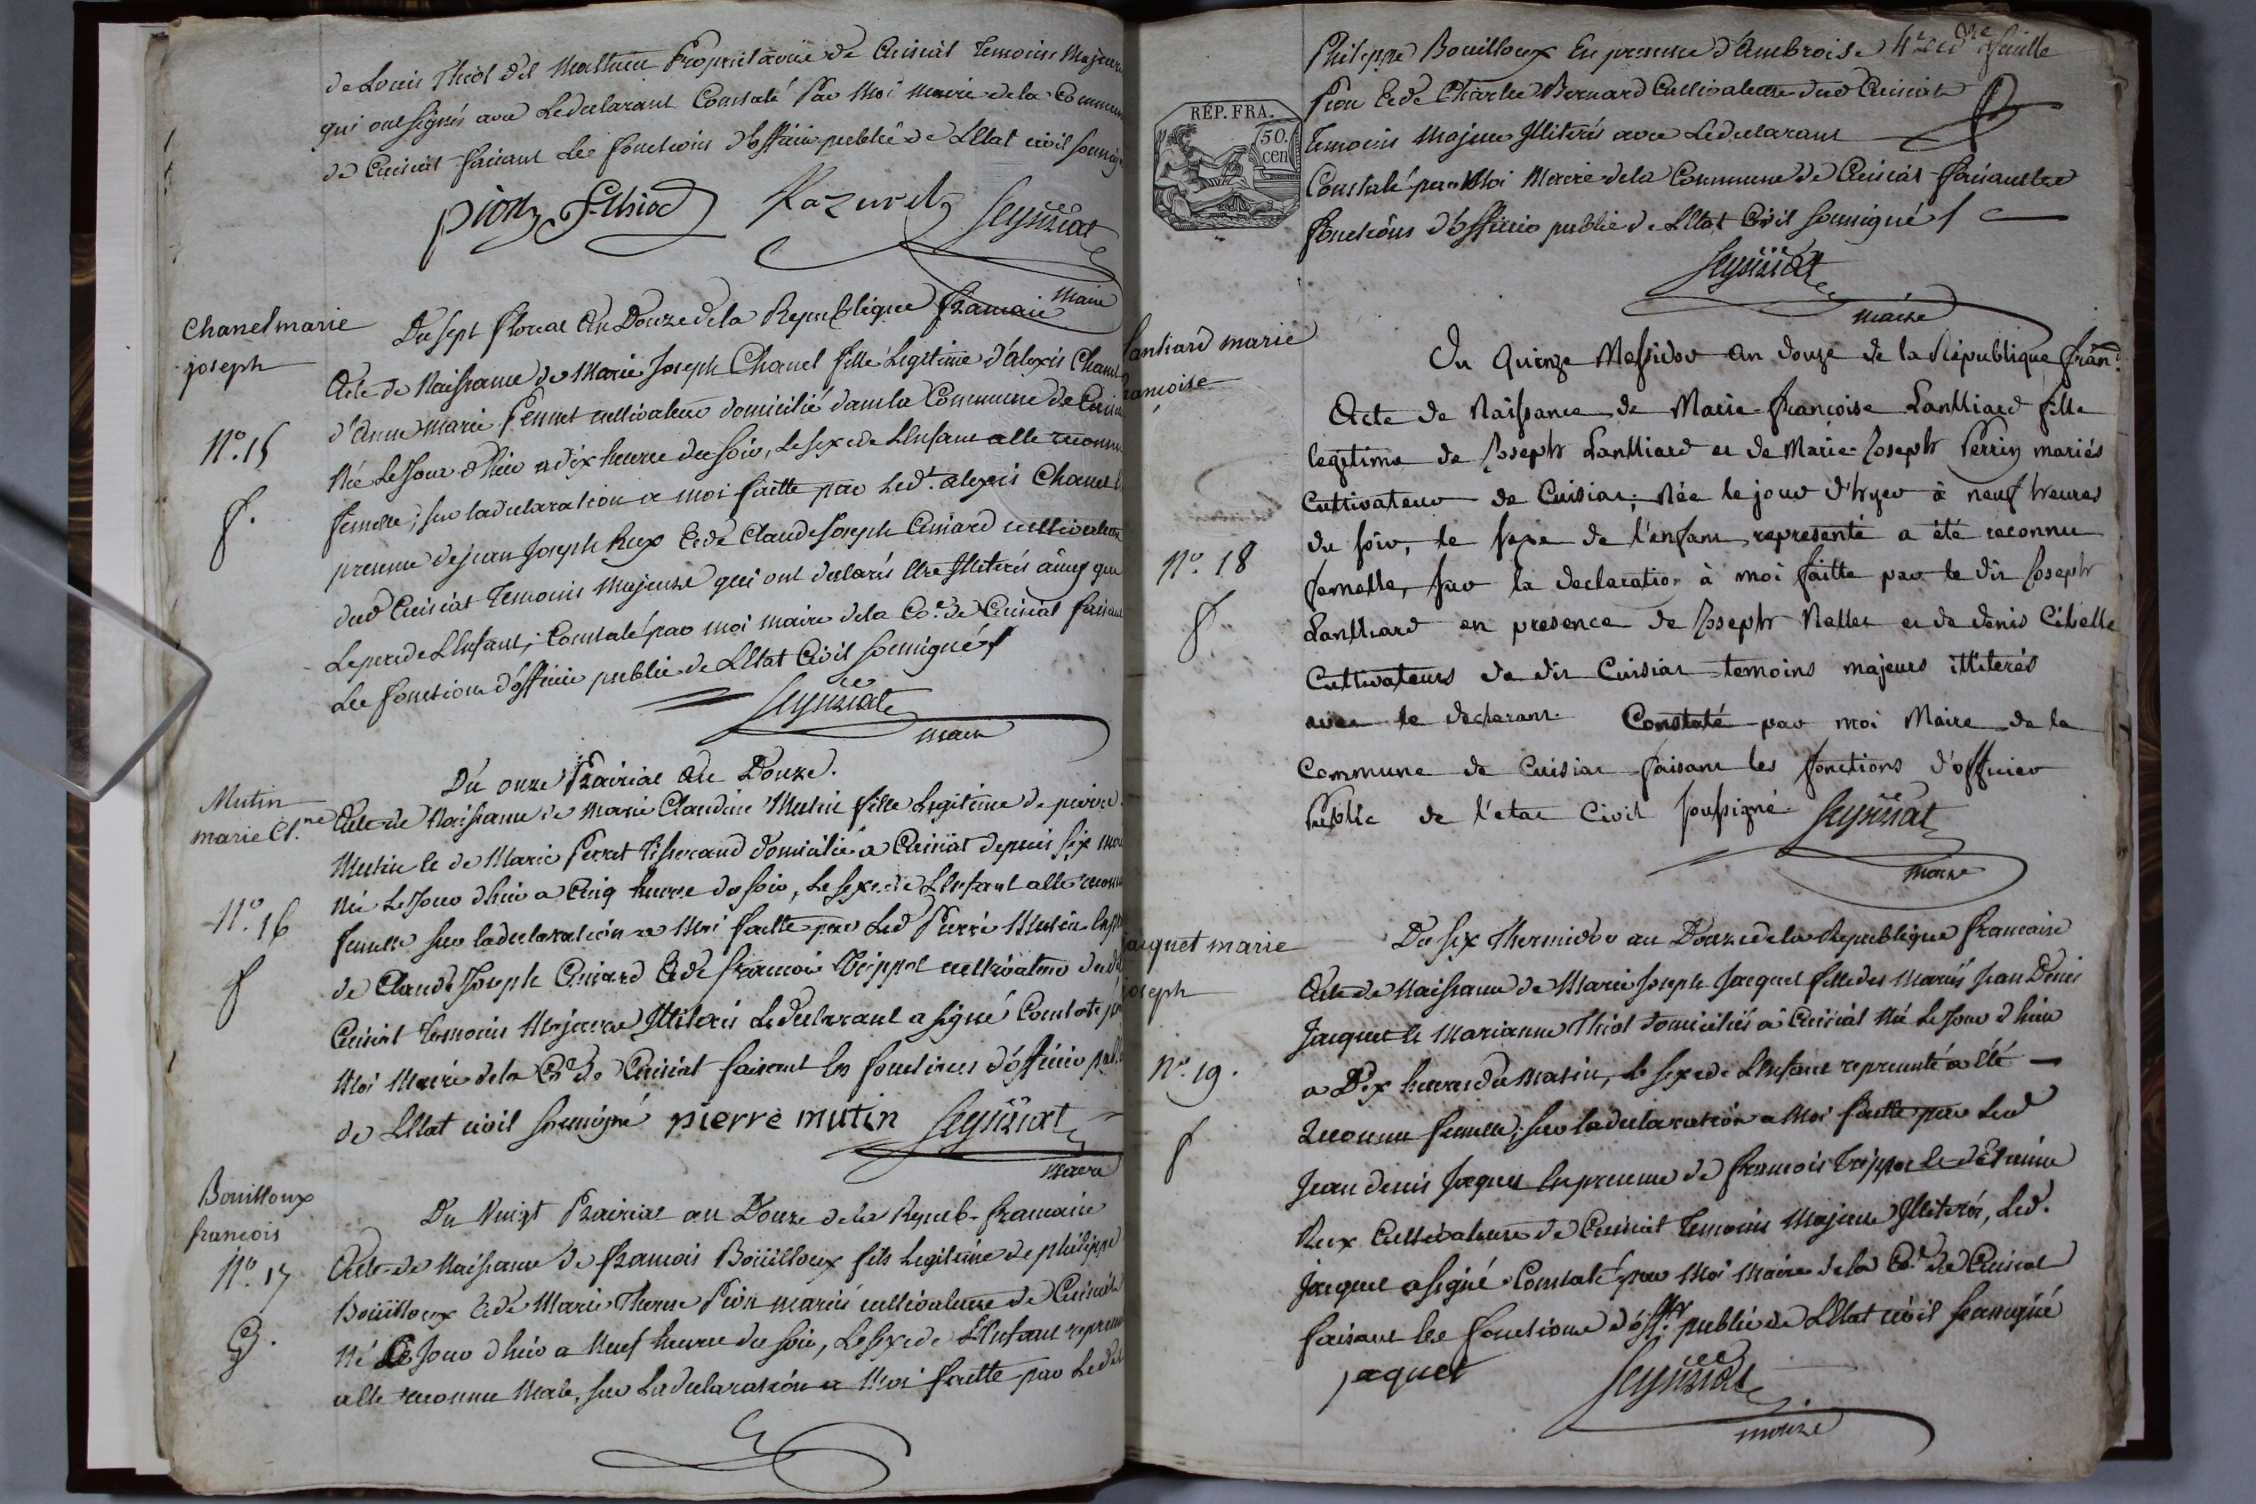 de Louis Thiol dit Mathieu Propriétaire de Cuisiat Temoins Majeurs
qui ont signés avec Le declarant Constaté Par Moi Maire de la Commune
de Cuisiat faisant Les fonctions d'officier public de L'Etat civil soussigné
pion f. thiod Seyssiat
Maire
Chanel marie
joseph
N.º 15
f.
Du sept floreal An Douze de la Republique francaise
Acte de Naissance de Marie Joseph Chanel fille Legitime d'alexis Chanel
d'Anne Marie Perret cultivateur domicilié dans la Commune de Cuisiat
Née Le Jour d'hier a dix heures du soir, Le sexe de L'Enfant a été reconnu
femelle; sur la declaration a moi faitte par Led.t alexis Chanel
presence de jean Joseph Rux et de Claude Joseph Cuinard cultivateurs
dud Cuisiat Temoins Majeurs qui ont declarés être Illiterés ainsy que
Le pere de L'Enfant; Constaté par moi maire de la Co.e de Cuisiat faisant
Les fonctions d'officier public de L'Etat Civil soussigné
Seyssiat
maire
Mutin
marie Cl.ne
N.º 16
f
Du onze Prairial An Douze.
Acte de Naissance de Marie Claudine Mutin fille Legitime de pierre
Mutin et de Marie Perret Tisserand domicilié a Cuisiat depuis six mois
Née Le Jour d'hier a Cinq heures du soir, Le sexe de L'Enfant a été reconnu
femelle sur la declaration a Moi faitte par Led Pierre Mutin
de Claude Joseph Cuinard et de francois Trippoz cultivateurs dud
Cuisiat Temoins Majeurs Illiterés Le declarant a signé Constaté par
Moi Maire de la Co.e de Cuisiat faisant les fonctions d'officier public
de L'Etat civil soussigné pierre mutin Seyssiat
maire
Bouilloux
francois
N.º 17
G.
Du Vingt Prairial an Douze de la Repub. francaise
Acte de Naissance de francois Bouilloux fils Legitime de philippe
Bouilloux et de Marie Therese Pion mariés cultivateurs de Cuisiat
Né Le Jour d'hier a Neuf heures du soir, Le sexe de L'Enfant
a été reconnu Male, sur La declaration a Moi faitte par Led
4.e et d.re feuille
REP. FRA.
50.
cen
Philippe Bouilloux En presence d'Ambroise
Pion et de Charles Bernard Cultivateurs dud Cuisiat
Temoins Majeurs Illiterés avec Le declarant
Constaté par Moi Maire de la Commune de Cuisiat faisant les
fonctions d'officier public de L'Etat Civil soussigné
Seyssiat
maire
Lanliard marie
françoise
N.º 18
f
Du Quinze Messidor an douze de la République fran.
Acte de Naissance de Marie-françoise Lanlliard fille
legitime de Joseph Lanlliard et de Marie-Joseph Perrin mariés
Cultivateur de Cuisiat; Née le jour d'hyer à neuf heures
du soir, le sexe de l'enfant representé a été reconnu
femelle, sur la declaration à moi faitte par le dit Joseph
Lanlliard en presence de Joseph Nallet et de denis Cibelle
Cultivateurs de dit Cuisiat temoins majeurs illiterés
avec le declarant. Constaté par moi Maire de la
Commune de Cuisiat faisant les fonctions d'officier
Public de l'etat Civil soussigné Seyssiat
maire
jacquet marie
joseph
N.º 19.
f
Du six Thermidor an Douze de la Republique francaise
Acte de Naissance de Marie Joseph Jacquet fille des Mariés Jean Denis
Jacquet et Marianne Thiol domiciliés a Cuisiat Née Le Jour d'hier
a Dix heures du Matin, Le sexe de L'Enfant representé a été
Reconnu femelle; sur la declaration a Moi faitte par Led
Jean denis Jaques En presence de francois Trippoz et d'Etienne
Rux Cultivateurs de Cuisiat Temoins Majeurs Illiterés, Led.
Jacquet a signé Constaté par Moi Maire de la Co.e de Cuisiat
faisant les fonctions d'off.er public de L'Etat civil soussigné
jaquet Seyssiat
maire